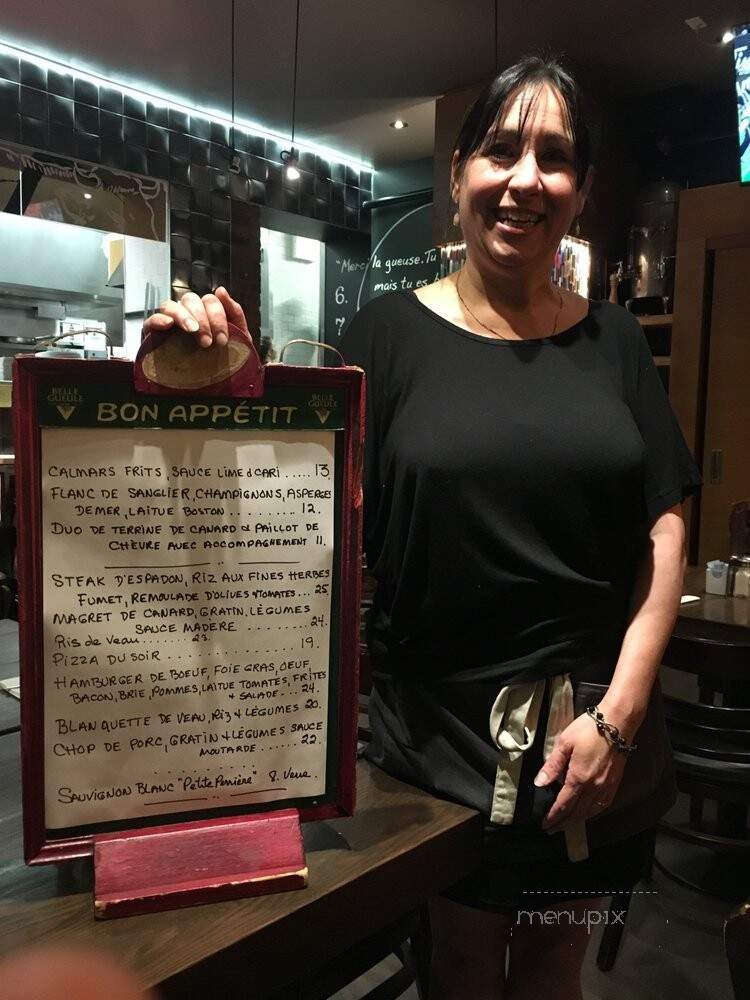 "Merci la gueuse. Tu
mais tu es
6.
7
BELLE
GUEULE
BON APPÉTIT
BELLE
GUEULE
CALMARS FRITS, SAUCE LIME & CARI ..... 13.
FLANC DE SANGLIER, CHAMPIGNONS, ASPERGES
DE MER, LAITUE BOSTON ......... 12.
DUO DE TERRINE DE CANARD & PAILLOT DE
CHÈVRE AVEC ACCOMPAGNEMENT 11.
STEAK D'ESPADON, RIZ AUX FINES HERBES
FUMET, REMOULADE D'OLIVES & TOMATES ... 25
MAGRET DE CANARD, GRATIN, LÉGUMES
SAUCE MADERE ........ 24.
Ris de Veau ....... 23.
PIZZA DU SOIR ............ 19.
HAMBURGER DE BOEUF, FOIE GRAS, OEUF,
BACON, BRIE, POMMES, LAITUE TOMATES, FRITES
& SALADE ... 24.
BLANQUETTE DE VEAU, RIZ & LÉGUMES 20.
CHOP DE PORC, GRATIN & LÉGUMES SAUCE
MOUTARDE ...... 22.
SAUVIGNON BLANC "Petite Perrière" 8. Verre.
menupix